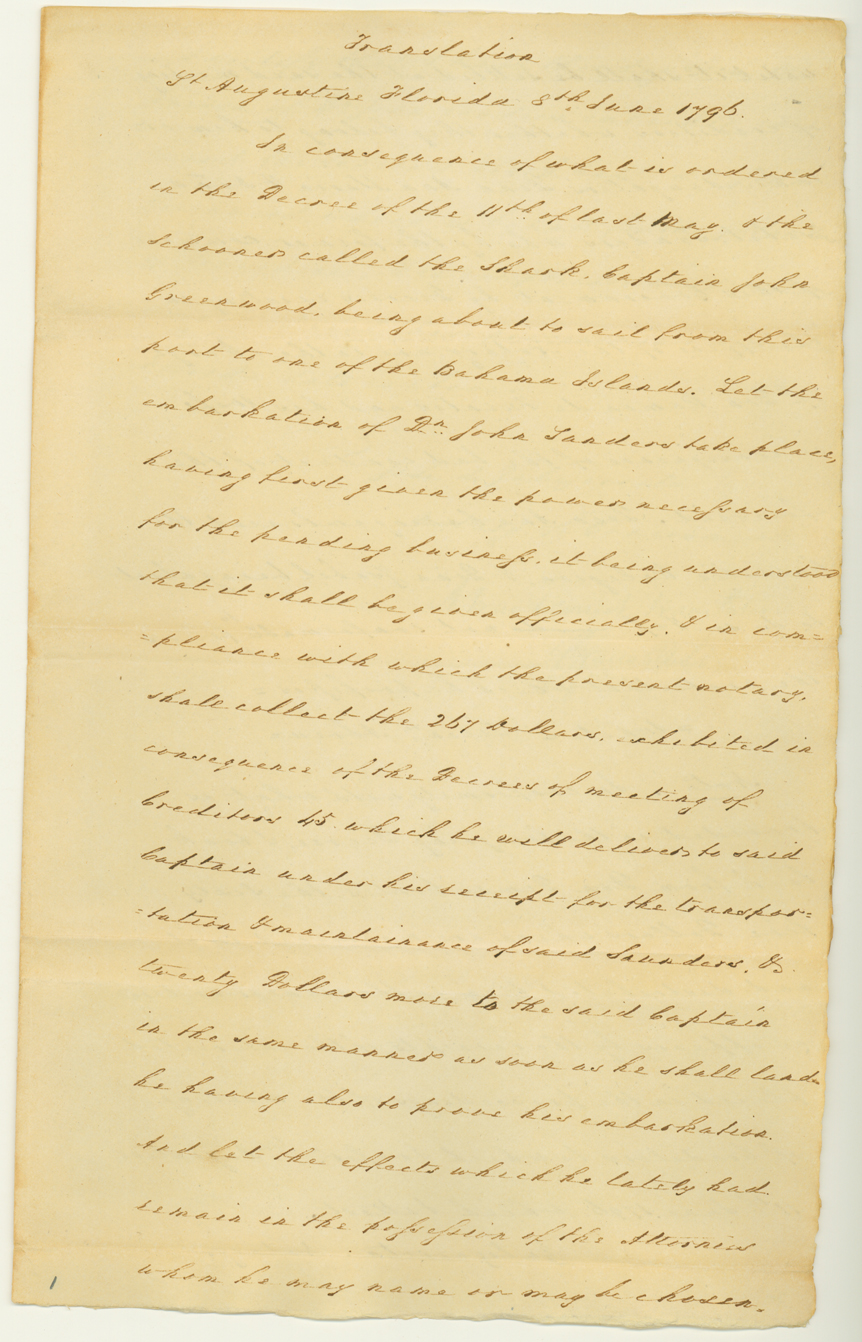 Translation
St Augustine Florida 8th June 1796.
In consequence of what is ordered
in the Decree of the 11th of last May. & the
Schooner called the Shark, Captain John
Greenwood, being about to sail from this
port to one of the Bahama Islands. Let the
embarkation of Dn. John Sanders take place,
having first given the power necessary
for the pending business, it being understood
that it shall be given officially, & in com=
=pliance with which the present notary,
shall collect the 267 Dollars, exhibited in
consequence of the Decrees of meeting of
Creditors 45 which he will deliver to said
Captain under his receipt for the transpor=
=tation & maintainance of said Saunders, &
twenty Dollars more to the said Captain
in the same manner as soon as he shall land
he having also to prove his embarkation.
And let the effects which he lately had
remain in the possession of the Attornies
whom he may name or may be chosen.
1